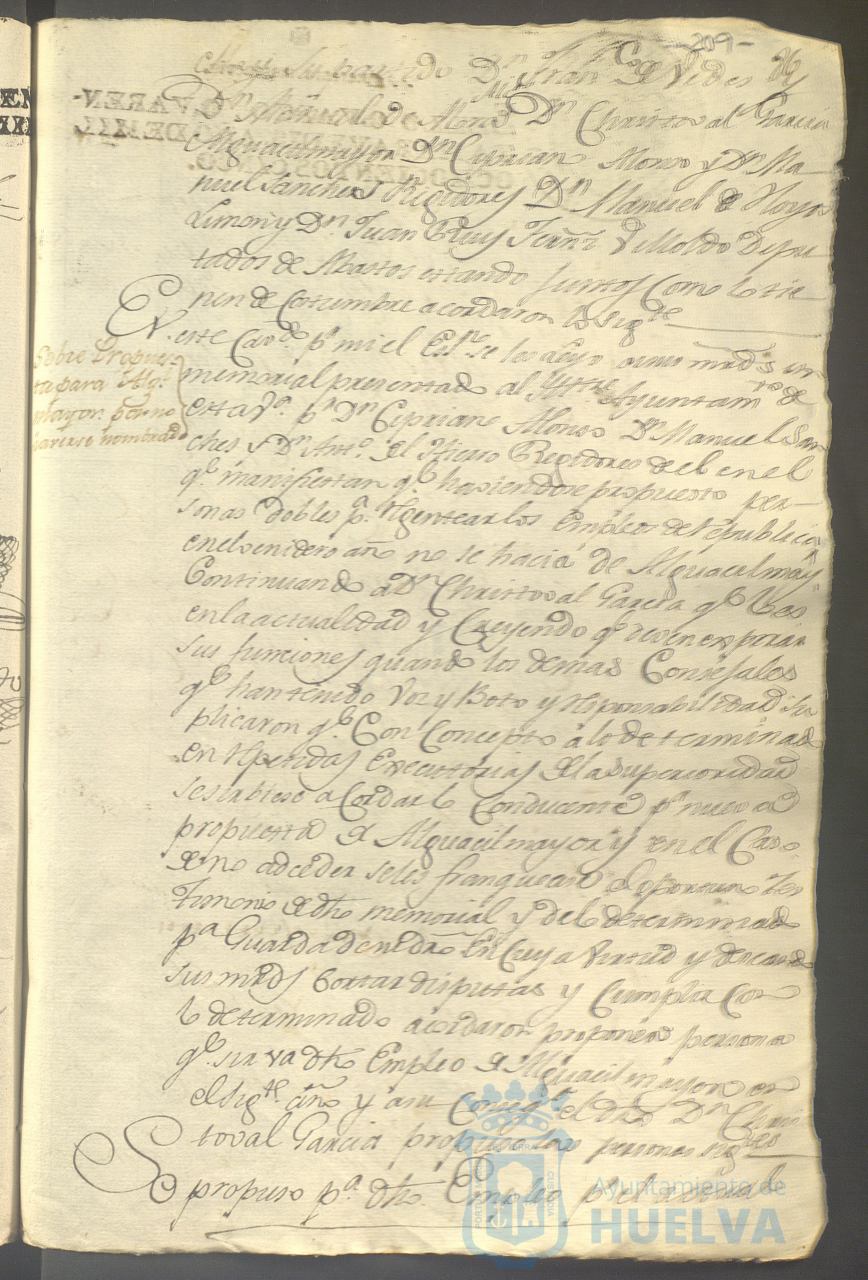 -209-
Dn Christoval Garcia
Alguacil mayor Dn Ciprian Alonso y Dn Ma
nuel Sanches Regidores Dn Manuel de Hoyo
Limon y Dn Juan Dipu
tados de Abastos estando juntos como lo tie
nen de costumbre acordaron lo sigte
En este Cavdo pr mi el Esno se les leyo a sus mrds un
memorial presentado al Ylltre Ayuntamto de
esta Va pr Dn Cipriano Alonso Dn Manuel San
ches y Dn Anto del Hierro Regidores de el en el
qe manifiestan qe haviendose propuesto per-
sonas dobles pa regentear los Empleos de republica
en el venidero año no se hacia de Alguacil mayr
Continuando a Dn Christoval Garcia qe lo es
en la actualidad y Creyendo qe deven expirar
sus funciones quando los demas Consejales
qe han tenido Voz y Boto y responsabilidad su
plicaron qe Con Concepto a lo determinado
en repetidas Executorias de la superioridad
se sirbiese acordar lo Conducente pa nueva
propuesta de Alguacil mayor y en el Caso
de no acceder se les franquease el oportuno tes
timonio de dho memorial y de lo determinado
pa Guarda de su dro En Cuya virtud y deseando
sus mrds Cortar disputas y Cumplir con
lo determinado acordaron proponer persona
qe sirva dho Empleo de Alguacil mayor en
el sigte año y a su conseqa el dho Dn Chris
toval Garcia propuso las personas sigtes
Se propuso pa dho Empleo pr el
Sobre Propues
ta para Algl
mayor por no
haverse nombrado
Ayuntamiento de
HUELVA